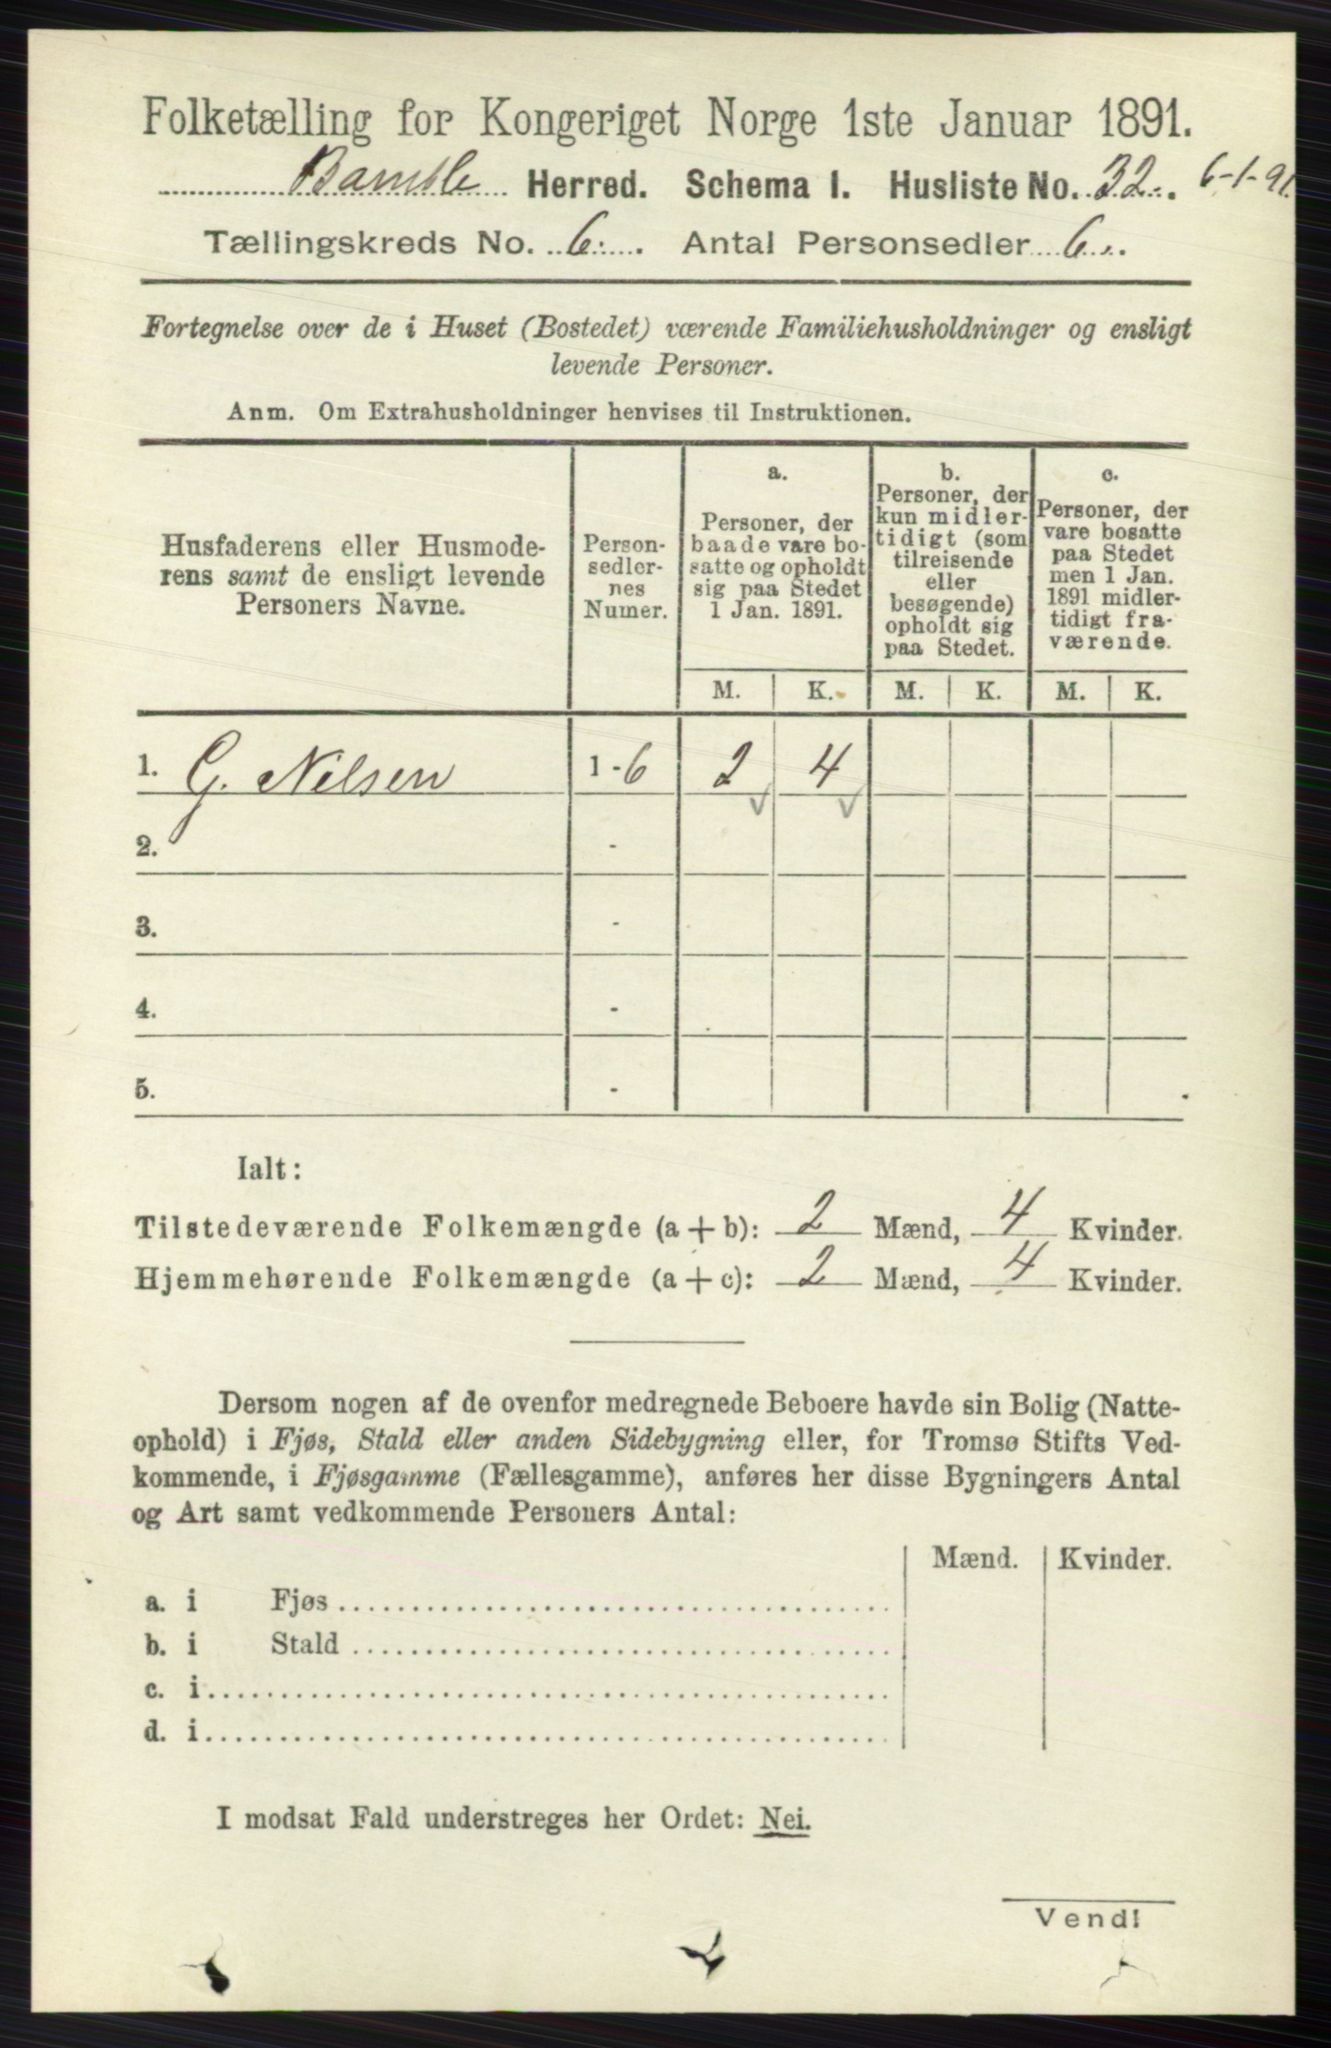 Folketælling for Kongeriget Norge 1ste Januar 1891.
Bamble Herred. Schema I. Husliste No. 32. 6-1-91.
Tællingskreds No. 6. Antal Personsedler 6.
Fortegnelse over de i Huset (Bostedet) værende Familiehusholdninger og ensligt
levende Personer.
Anm. Om Extrahusholdninger henvises til Instruktionen.
Husfaderens eller Husmode-
rens samt de ensligt levende
Personers Navne.
Person-
sedler-
nes
Numer.
a.
Personer, der
baade vare bo-
satte og opholdt
sig paa Stedet
1 Jan. 1891.
b.
Personer, der
kun midler-
tidigt (som
tilreisende
eller
besøgende)
opholdt sig
paa Stedet.
c.
Personer, der
vare bosatte
paa Stedet
men 1 Jan.
1891 midler-
tidigt fra-
værende.
M. K. M. K. M. K.
1. G. Nilsen 1-6 2 4
2. -
3. -
4. -
5. -
Ialt:
Tilstedeværende Folkemængde (a + b): 2 Mænd, 4 Kvinder.
Hjemmehørende Folkemængde (a + c): 2 Mænd, 4 Kvinder.
Dersom nogen af de ovenfor medregnede Beboere havde sin Bolig (Natte-
ophold) i Fjøs, Stald eller anden Sidebygning eller, for Tromsø Stifts Ved-
kommende, i Fjøsgamme (Fællesgamme), anføres her disse Bygningers Antal
og Art samt vedkommende Personers Antal:
Mænd. Kvinder.
a. i Fjøs
b. i Stald
c. i
d. i
I modsat Fald understreges her Ordet: Nei.
Vend!